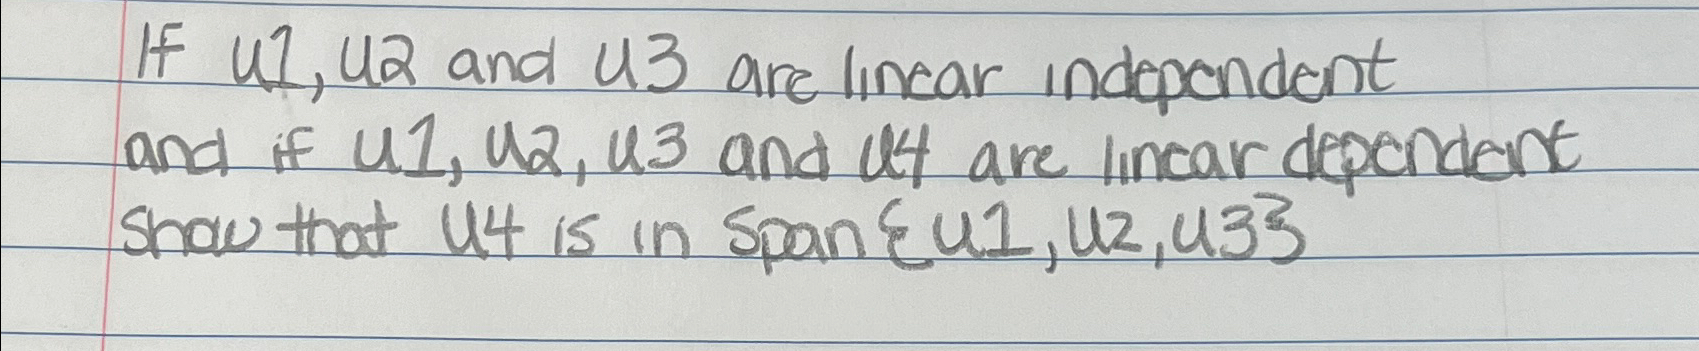 If u1, u2 and u3 are linear independent
and if u1, u2, u3 and u4 are linear dependent
show that u4 is in span{u1, u2, u3}